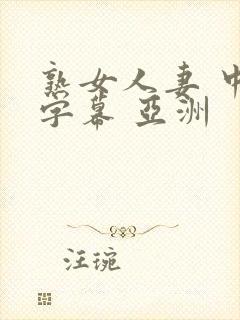 熟女人妻 中
字幕 亞洲
汪琬